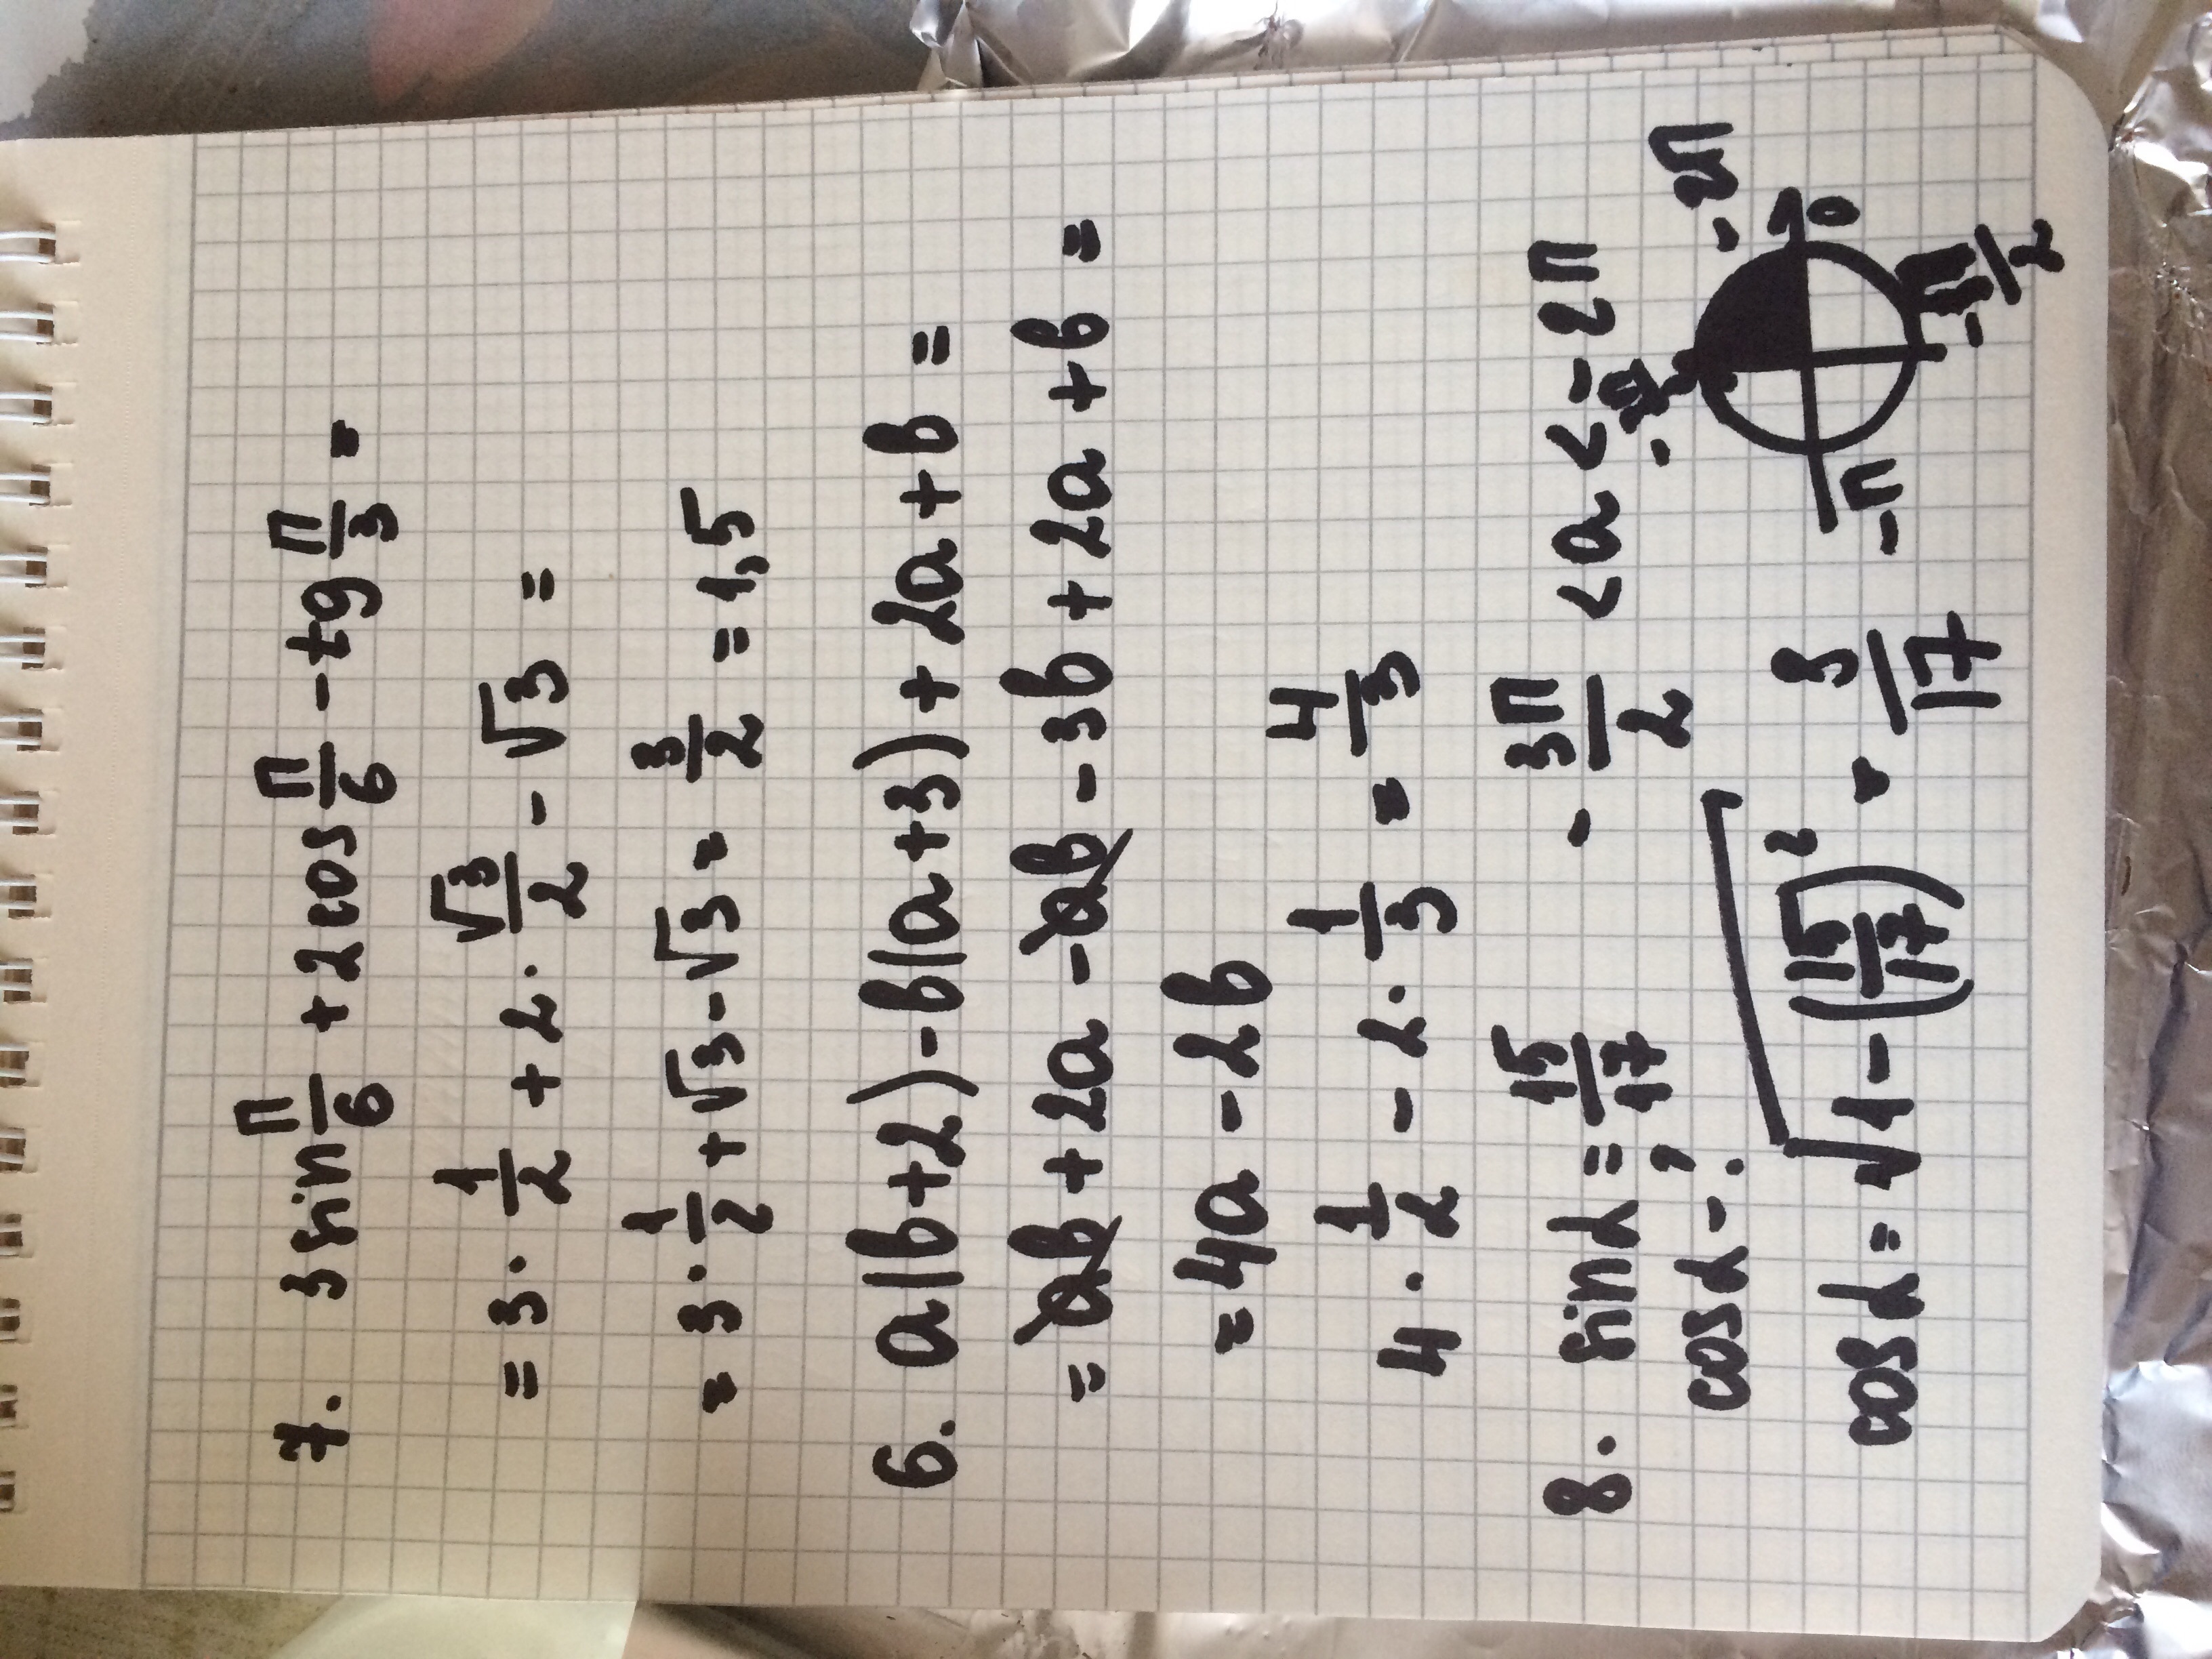 7. 3 sin π/6 + 2cos π/6 - tg π/3 =
= 3 · 1/2 + 2 · √3/2 - √3 =
= 3 · 1/2 + √3 - √3 = 3/2 = 1,5
6. a(b+2) - b(a+3) + 2a + b =
= ab + 2a - ab - 3b + 2a + b =
= 4a - 2b
4 · 1/2 - 2 · 1/3 = 4/3
8. sin α = 15/17 - 3π/2 < a < - 2π
cos α - ?
-2π
0
-π
-π/2
cos α = √(1 - (15/17)²) =